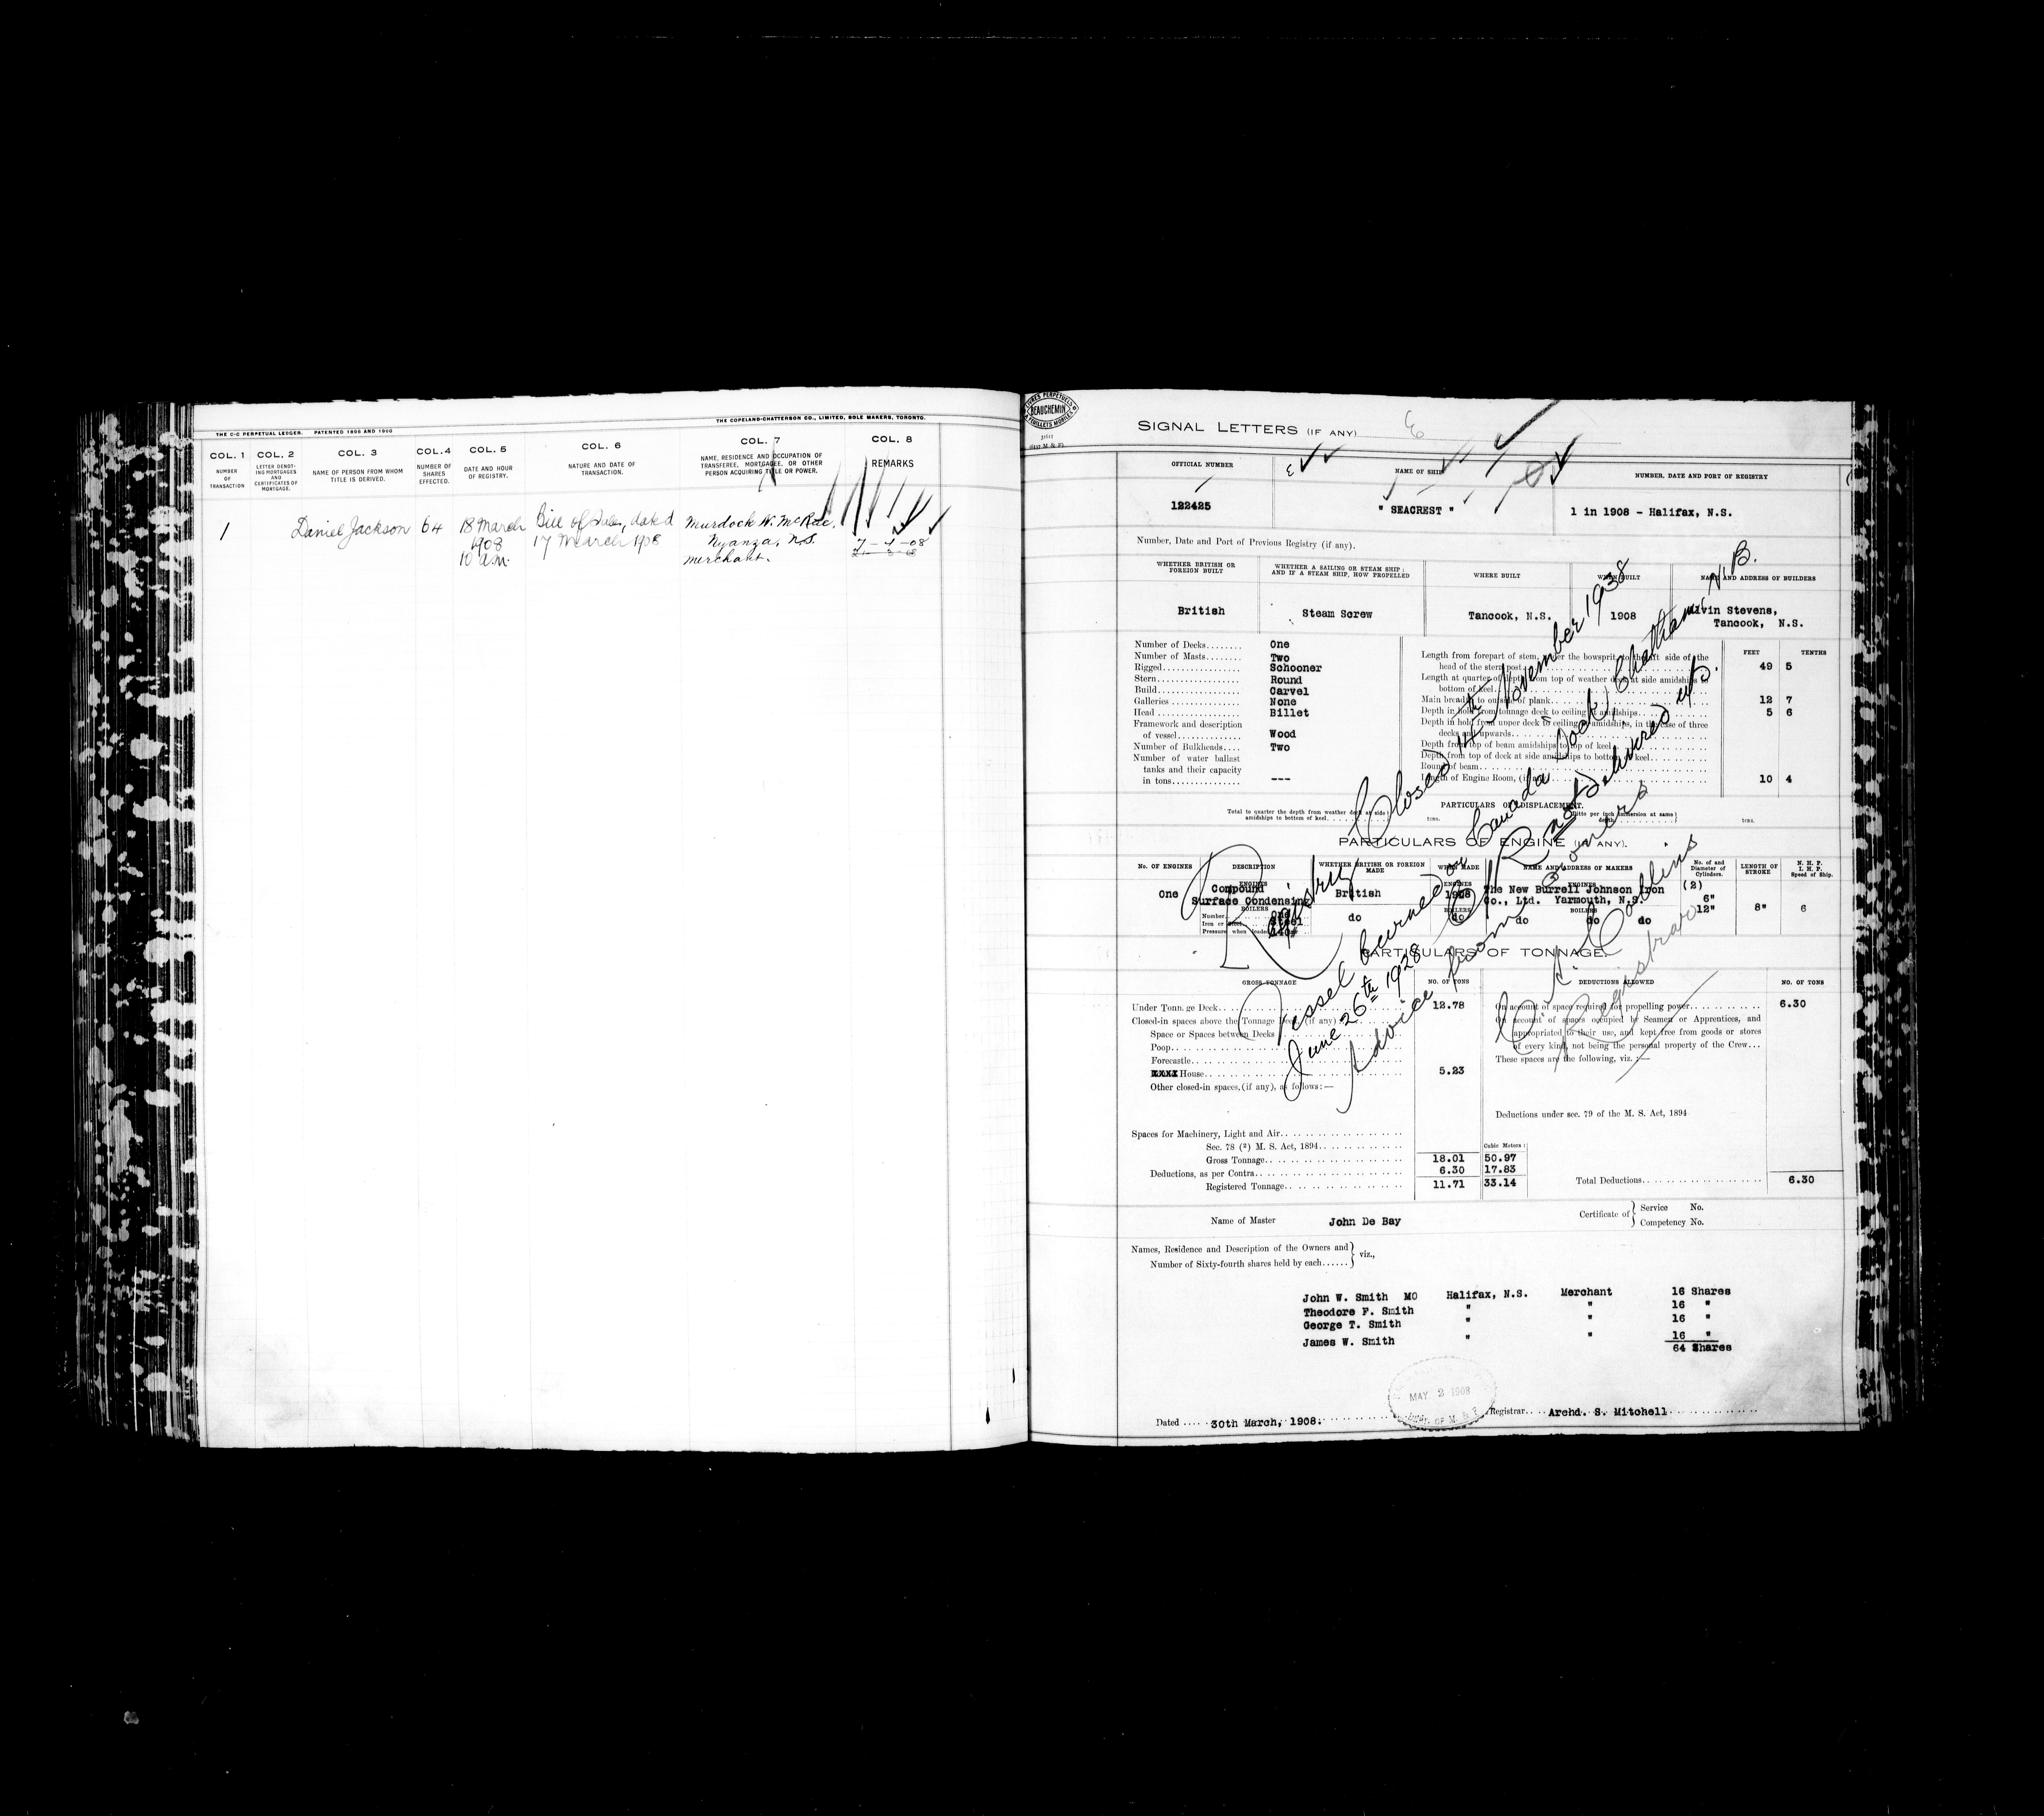 THE C-C PERPETUAL LEDGER. PATENTED 1898 AND 1900
THE COPELAND-CHATTERSON CO., LIMITED, SOLE MAKERS, TORONTO.
COL. 1 COL. 2 COL. 3 COL.4 COL. 5 COL. 6 COL. 7 COL. 8
NUMBER OF TRANSACTION
LETTER DENOT-ING MORTGAGES AND CERTIFICATES OF MORTGAGE.
NAME OF PERSON FROM WHOM TITLE IS DERIVED.
NUMBER OF SHARES EFFECTED.
DATE AND HOUR OF REGISTRY.
NATURE AND DATE OF TRANSACTION.
NAME, RESIDENCE AND OCCUPATION OF TRANSFEREE, MORTGAGEE, OR OTHER PERSON ACQUIRING TITLE OR POWER.
REMARKS
1 Daniel Jackson 64 18 March Bill of Sale, dated Murdock W. McRae,
1908 17 March 1908 Nyanza, N.S. 7-4-08
10 a.m. merchant.
BEAUCHEMIN
SIGNAL LETTERS (IF ANY)
OFFICIAL NUMBER NAME OF SHIP NUMBER, DATE AND PORT OF REGISTRY
122425 " SEACREST " 1 in 1908 - Halifax, N.S.
Number, Date and Port of Previous Registry (if any).
WHETHER BRITISH OR FOREIGN BUILT
WHETHER A SAILING OR STEAM SHIP; AND IF A STEAM SHIP, HOW PROPELLED
WHERE BUILT
WHEN BUILT
NAME AND ADDRESS OF BUILDERS
British Steam Screw Tancook, N.S. 1908 Stevens,
Tancook, N.S.
Number of Decks........ One
Number of Masts........ Two
Rigged................ Schooner
Stern................. Round
Build................. Carvel
Galleries ............. None
Head ................. Billet
Framework and description
of vessel............. Wood
Number of Bulkheads.... Two
Number of water ballast
tanks and their capacity
in tons............... ---
FEET TENTHS
Length from forepart of stem, under the bowsprit, to the aft side of the
head of the stern post. 49 5
Length at quarter of depth from top of weather deck at side amidships to
bottom of keel.
Main breadth to outside of plank. 12 7
Depth in hold from tonnage deck to ceiling at amidships. 5 6
Depth in hold from upper deck to ceiling at amidships, in the case of three
decks and upwards.
Depth from top of beam amidships to top of keel.
Depth from top of deck at side amidships to bottom of keel.
Round of beam.
Length of Engine Room, (if any). 10 4
PARTICULARS OF DISPLACEMENT.
Total to quarter the depth from weather deck at side amidships to bottom of keel. tons.
Ditto per inch immersion at same depth. tons.
PARTICULARS OF ENGINE (IF ANY).
No. OF ENGINES DESCRIPTION WHETHER BRITISH OR FOREIGN MADE WHEN MADE NAME AND ADDRESS OF MAKERS No. of and Diameter of Cylinders. LENGTH OF STROKE N. H. P. I. H. P. Speed of Ship.
ENGINES ENGINES ENGINES
One Compound British 1908 The New Burrell Johnson Iron (2)
Surface Condensing Co., Ltd. Yarmouth, N.S. 6"
BOILERS BOILERS BOILERS 12" 8" 6
Number. One do do do do do
Iron or Steel. Steel
Pressure when loaded
PARTICULARS OF TONNAGE.
GROSS TONNAGE NO. OF TONS DEDUCTIONS ALLOWED NO. OF TONS
Under Tonnage Deck. 12.78
Closed-in spaces above the Tonnage Deck, (if any)
Space or Spaces between Decks
Poop.
Forecastle.
House. 5.23
Other closed-in spaces, (if any), as follows:—
On account of space required for propelling power. 6.30
On account of spaces occupied by Seamen or Apprentices, and
appropriated to their use, and kept free from goods or stores
of every kind, not being the personal property of the Crew...
These spaces are the following, viz. :—
Deductions under sec. 79 of the M. S. Act, 1894
Spaces for Machinery, Light and Air.
Sec. 78 (2) M. S. Act, 1894. Cubic Meters:
Gross Tonnage. 18.01 50.97
Deductions, as per Contra. 6.30 17.83
Registered Tonnage. 11.71 33.14
Total Deductions. 6.30
Registry Closed 14th November 1938
Vessel burned at Canada Dock, Chatham, N.B.
June 26th 1928 C/R not delivered up.
Advice from owners
Collins
Registrar
Name of Master John De Bay
Certificate of Service No.
Competency No.
Names, Residence and Description of the Owners and
Number of Sixty-fourth shares held by each...... viz.,
John W. Smith MO Halifax, N.S. Merchant 16 Shares
Theodore F. Smith " " 16 "
George T. Smith " " 16 "
James W. Smith " " 16 "
64 Shares
MAY 2 1908
Dated .... 30th March, 1908. Registrar. Archd. S. Mitchell